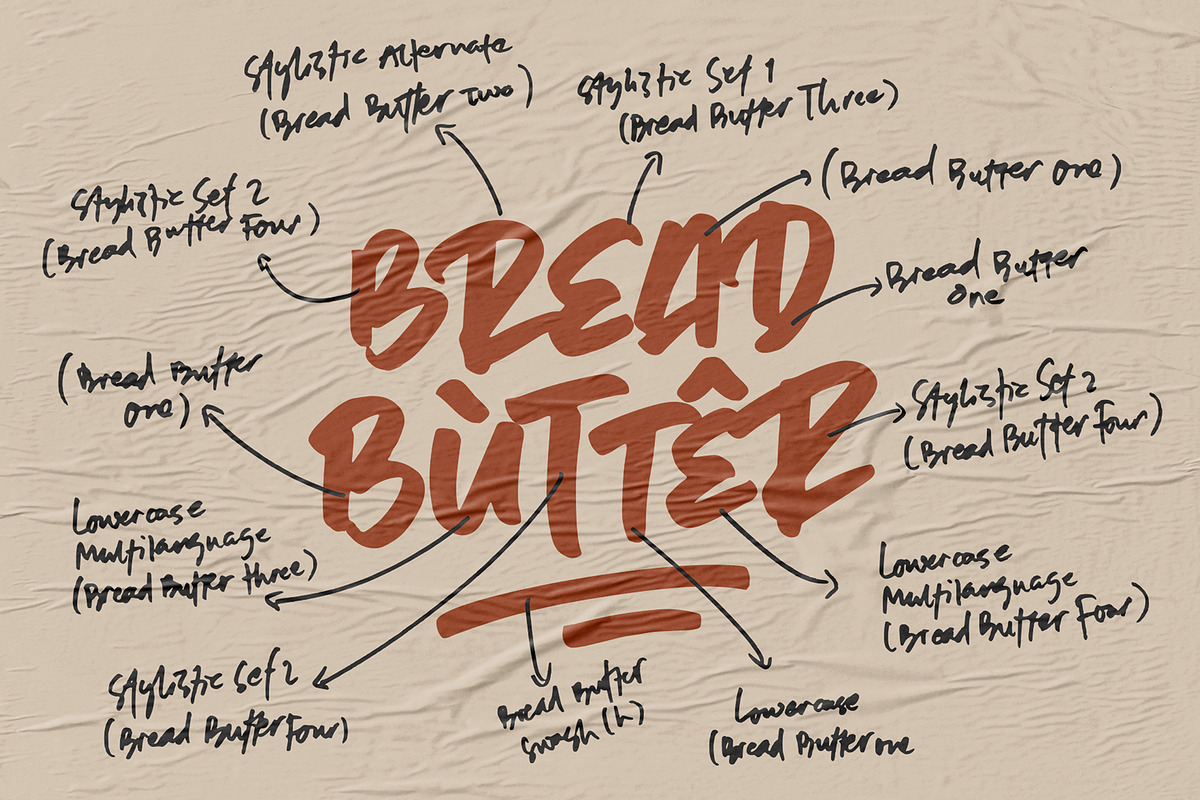 Stylistic Alternate
(Bread Butter Two)
Stylistic Set 1
(Bread Butter Three)
(Bread Butter one)
Stylistic Set 2
(Bread Butter Four)
BREAD
Bread Butter
One
BÙTTÊR
(Bread Butter
one)
Stylistic Set 2
(Bread Butter Four)
Lowercase
Multilanguage
(Bread Butter three)
Lowercase
Multilanguage
(Bread Butter Four)
Stylistic Set 2
(Bread Butter Four)
Bread Butter
Swash (h)
Lowercase
(Bread Butter one